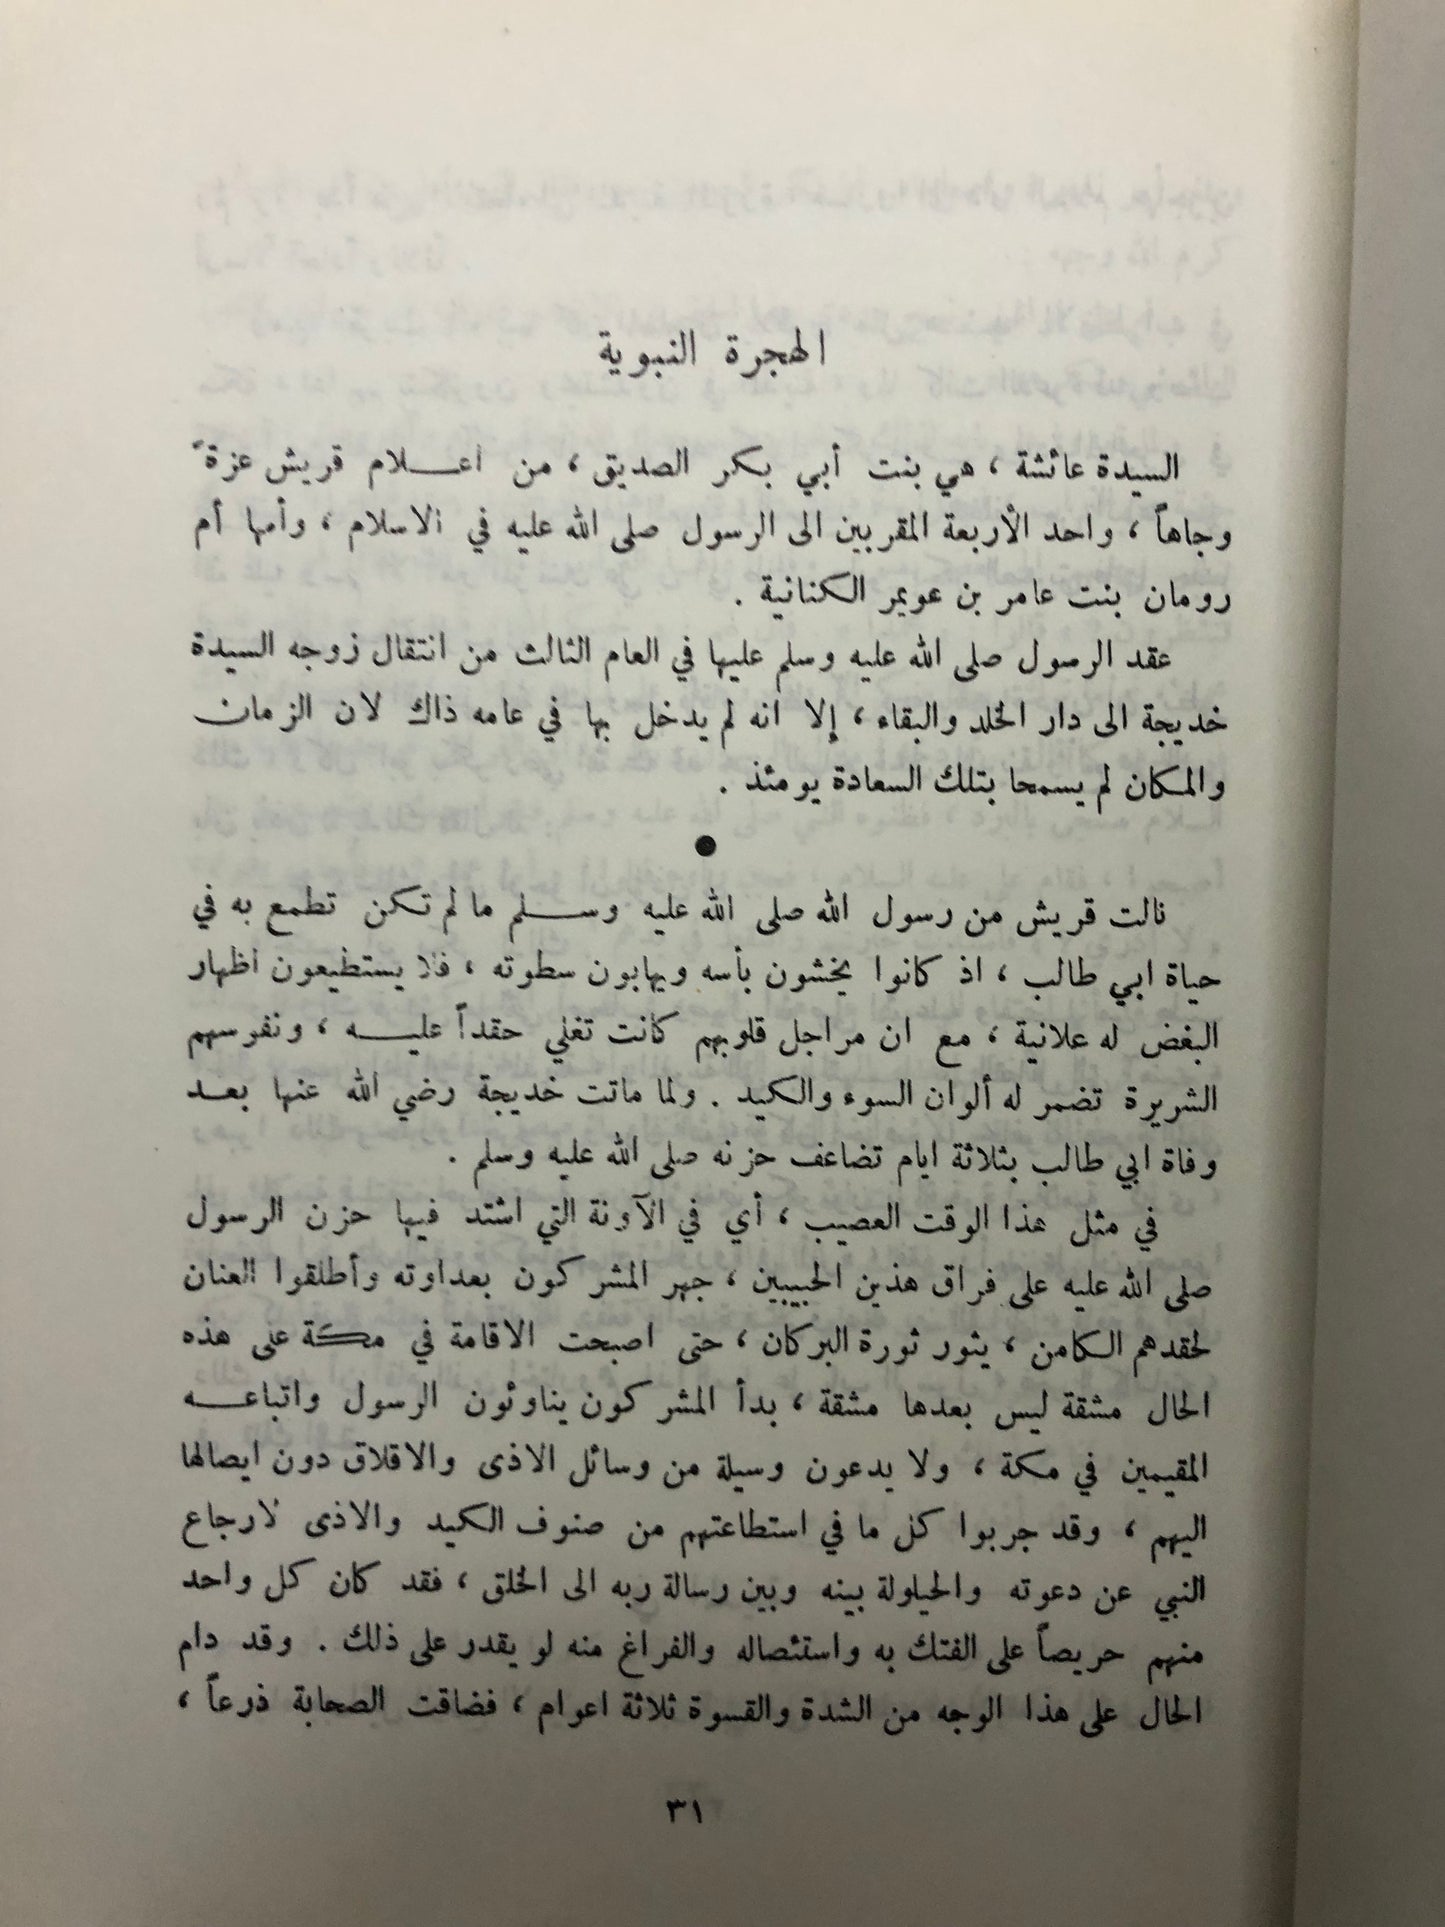 الهجرة النبوية
السيدة عائشة ، هي بنت أبي بكر الصديق ، من اعـلام قريش عزة ً
وجاهاً ، واحد الأربعة المقربين الى الرسول صلى الله عليه في الاسلام ، وأمها أم
رومان بنت عامر بن عويمر الكنانية .
عقد الرسول صلى الله عليه وسلم عليها في العام الثالث من انتقال زوجه السيدة
خديجة الى دار الخلد والبقاء ، إلا انه لم يدخل بها في عامه ذاك لان الزمان
والمكان لم يسمحا بتلك السعادة يومئذ .
●
نالت قريش من رسول الله صلى الله عليه وسـلم ما لم تكن تطمع به في
حياة ابي طالب ، اذ كانوا يخشون بأسه ويهابون سطوته ، فلا يستطيعون اظهار
البغض له علانية ، مع ان مراجل قلوبهم كانت تغلي حقداً عليـه ، ونفوسهم
الشريرة تضمر له ألوان السوء والكيد . ولما ماتت خديجة رضي الله عنها بعـد
وفاة ابي طالب بثلاثة ايام تضاعف حزنه صلى الله عليه وسلم .
في مثل هذا الوقت العصيب ، أي في الآونة التي اشتد فيها حزن الرسول
صلى الله عليه على فراق هذين الحبيبين ، جهر المشركون بعداوته وأطلقوا العنان
لحقدهم الكامن ، يثور ثورة البركان ، حتى اصبحت الاقامة في مكة على هذه
الحال مشقة ليس بعدها مشقة ، بدأ المشركون يناوئون الرسول واتباعـه
المقيمين في مكة ، ولا يدعون وسيلة من وسائل الاذى والاقلاق دون ايصالها
اليهم ، وقد جربوا كل ما في استطاعتهم من صنوف الكيد والاذى لارجاع
النبي عن دعوته والحيلولة بينه وبين رسالة ربه الى الخلق ، فقد كان كل واحد
منهم حريصاً على الفتك به واستئصاله والفراغ منه لو يقدر على ذلك . وقد دام
الحال على هذا الوجه من الشدة والقسوة ثلاثة اعوام ، فضاقت الصحابة ذرعاً ،
٣١